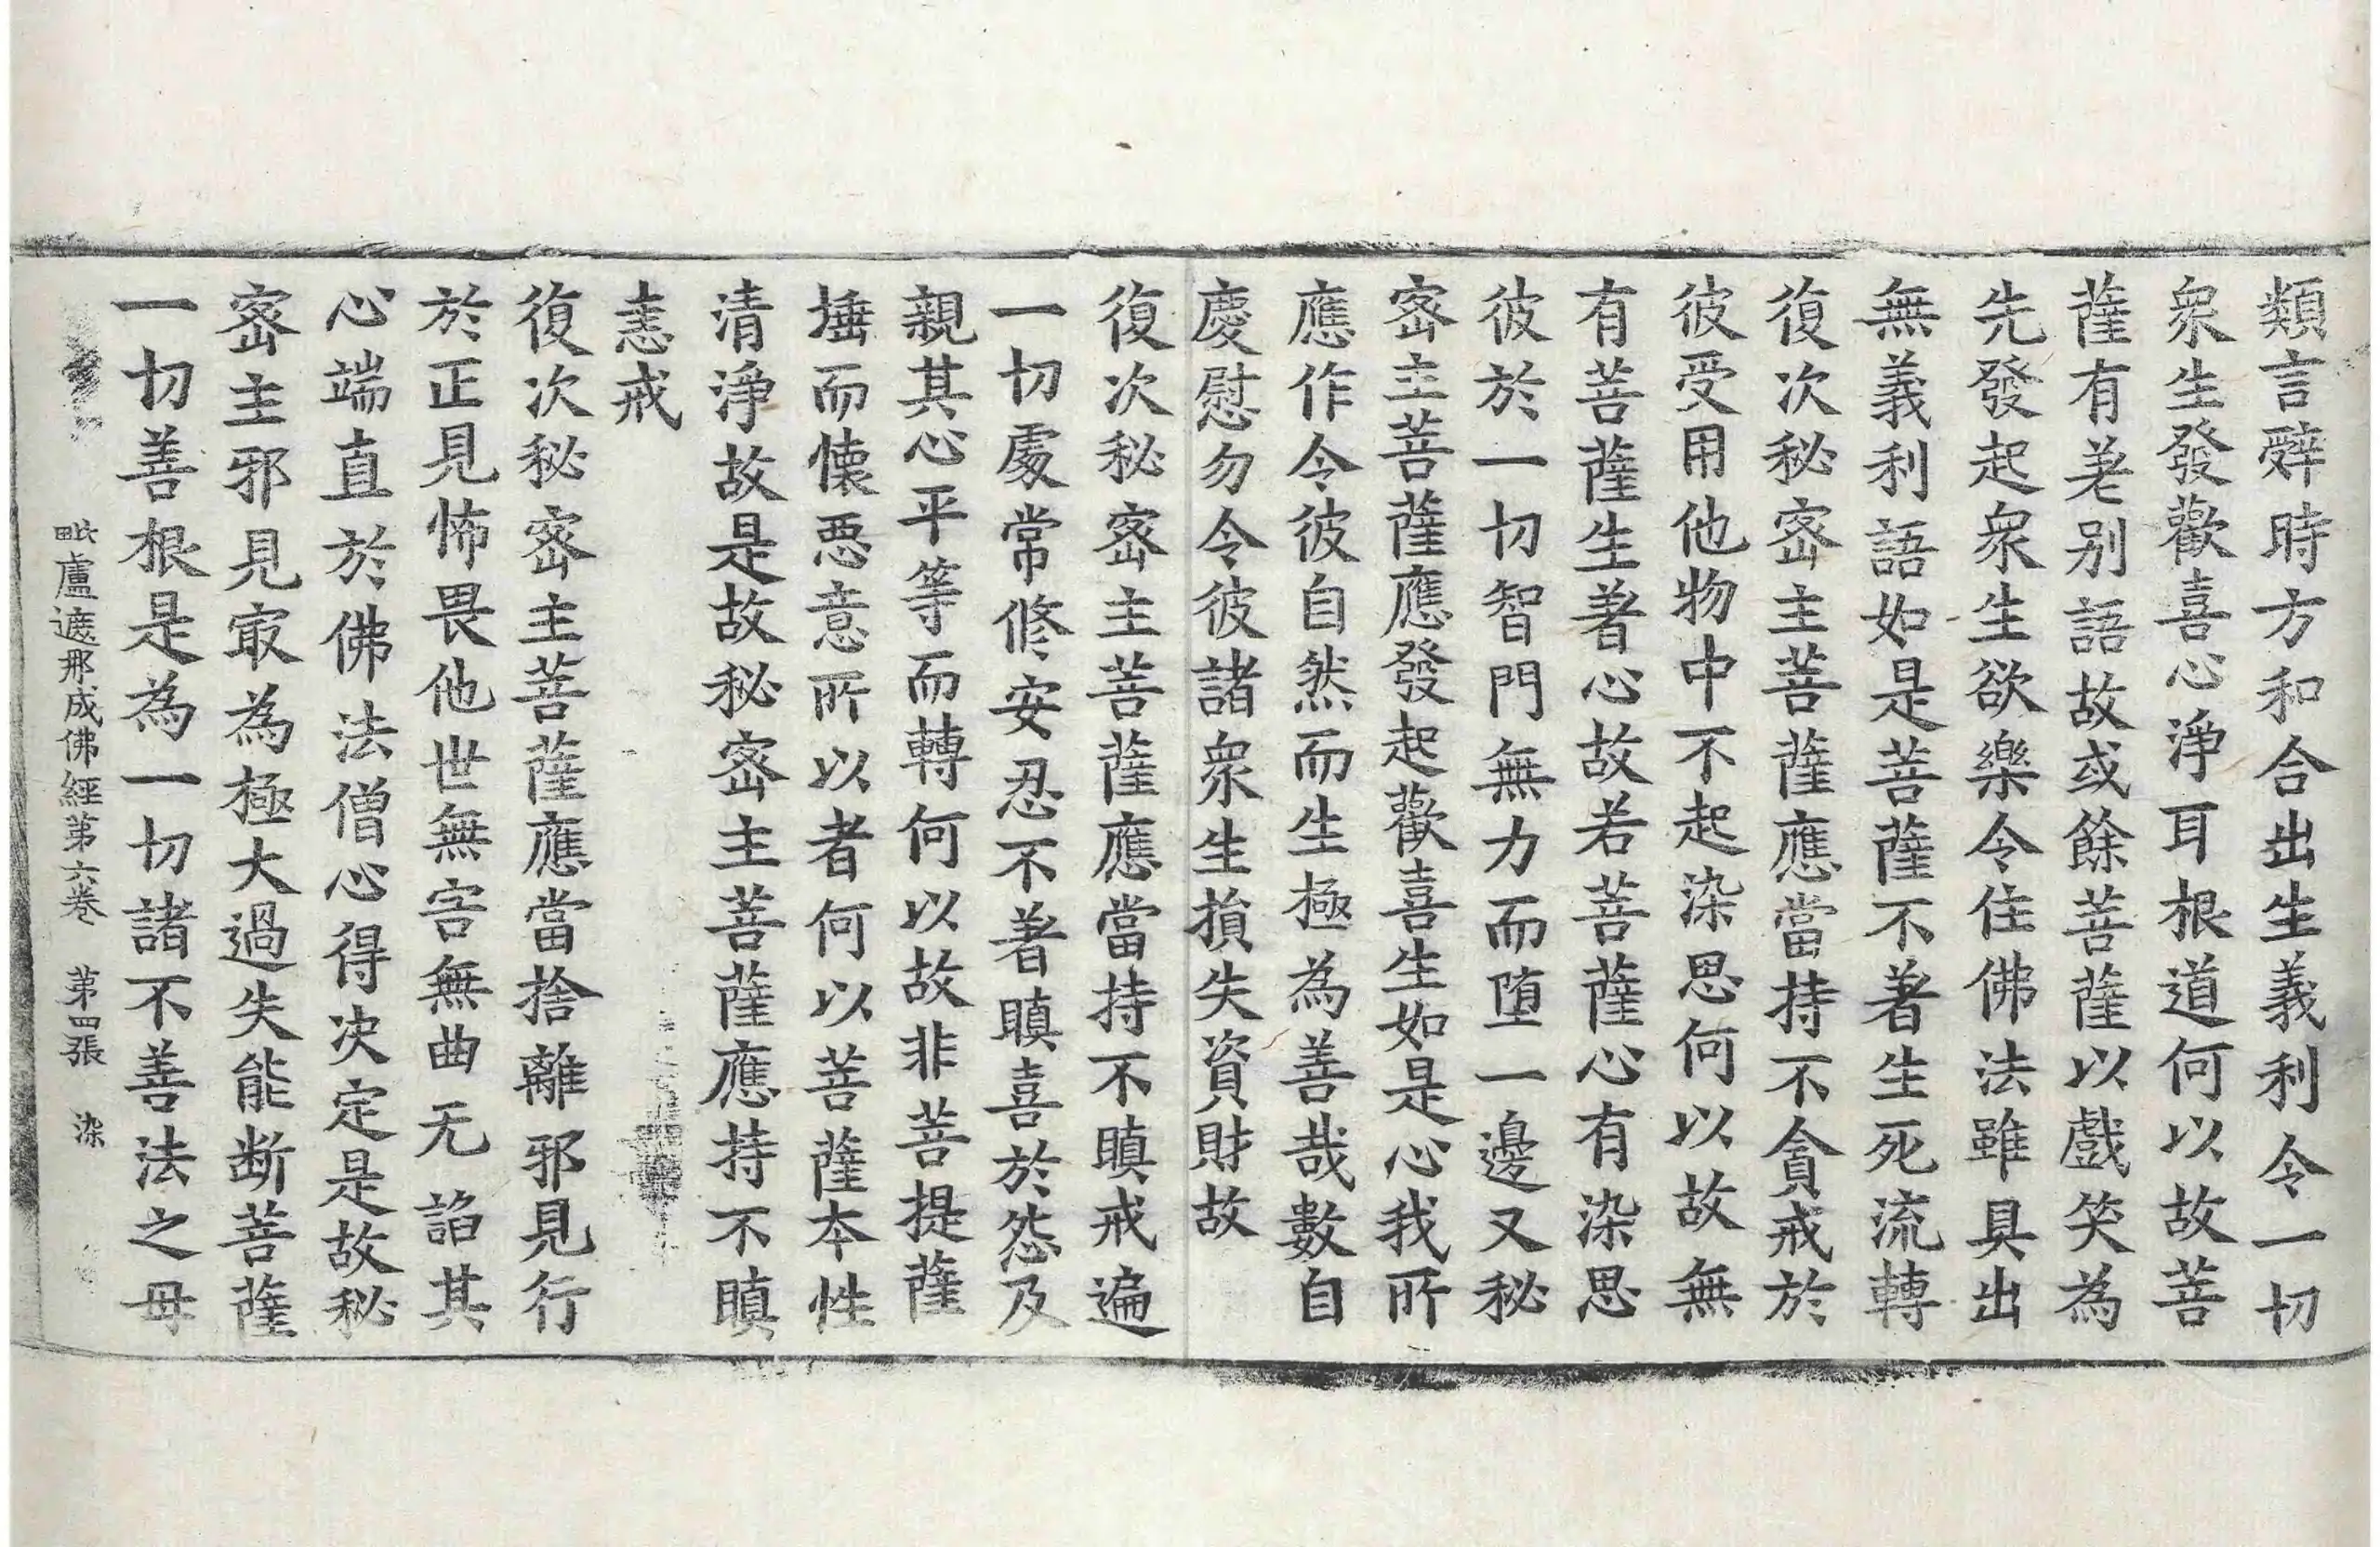 類言辭時方和合出生義利令一切
衆生發歡喜心淨耳根道何以故菩
薩有差别語故或餘菩薩以戲笑為
先發起衆生欲樂令住佛法雖具出
無義利語如是菩薩不著生死流轉
復次秘宻主菩薩應當持不貪戒於
彼受用他物中不起染思何以故無
有菩薩生著心故若菩薩心有染思
彼於一切智門無力而墮一邊又秘
宻主菩薩應發起歡喜生如是心我所
應作令彼自然而生極為善哉數自
慶慰勿令彼諸衆生損失資財故
復次秘宻主菩薩應當持不瞋戒遍
一切處常修安忍不著瞋喜於怨及
親其心平等而轉何以故非菩提薩
埵而懐惡意所以者何以菩薩本性
清淨故是故秘宻主菩薩應持不瞋
恚戒
復次秘宻主菩薩應當捨離邪見行
於正見怖畏他世無害無曲无諂其
心端直於佛法僧心得决定是故秘
宻主邪見㝡為極大過失能断菩薩
一切善根是為一切諸不善法之母
毗盧遮那成佛經第六卷 第四張 染